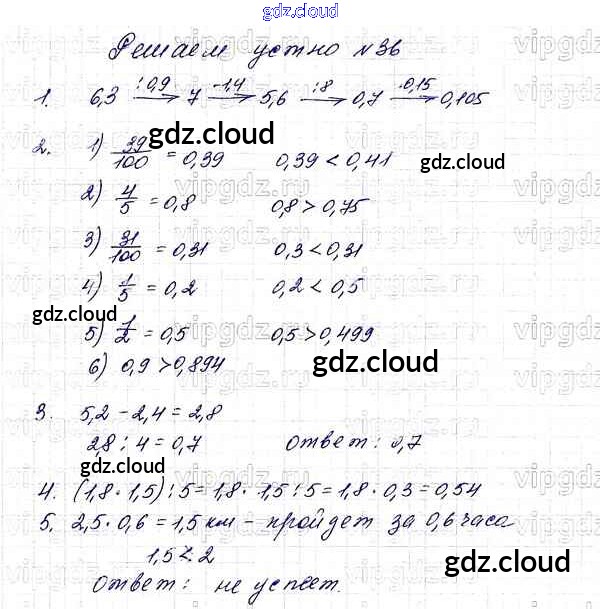 gdz.cloud
Решаем устно №36
1. 6,3 :0,9→ 7 -1,4→ 5,6 :8→ 0,7 ·0,15→ 0,105
gdz.cloud
2. 1) 39/100 = 0,39 0,39 < 0,41
gdz.cloud
2) 4/5 = 0,8 0,8 > 0,75
3) 31/100 = 0,31 0,3 < 0,31
4) 1/5 = 0,2 0,2 < 0,5
gdz.cloud
5) 1/2 = 0,5 0,5 > 0,499
6) 0,9 > 0,894
gdz.cloud
3. 5,2 - 2,4 = 2,8
2,8 : 4 = 0,7 Ответ: 0,7
gdz.cloud
4. (1,8 · 1,5) : 5 = 1,8 · 1,5 : 5 = 1,8 · 0,3 = 0,54
5. 2,5 · 0,6 = 1,5 км - пройдет за 0,6 часа
1,5 < 2
gdz.cloud
Ответ: не успеет.